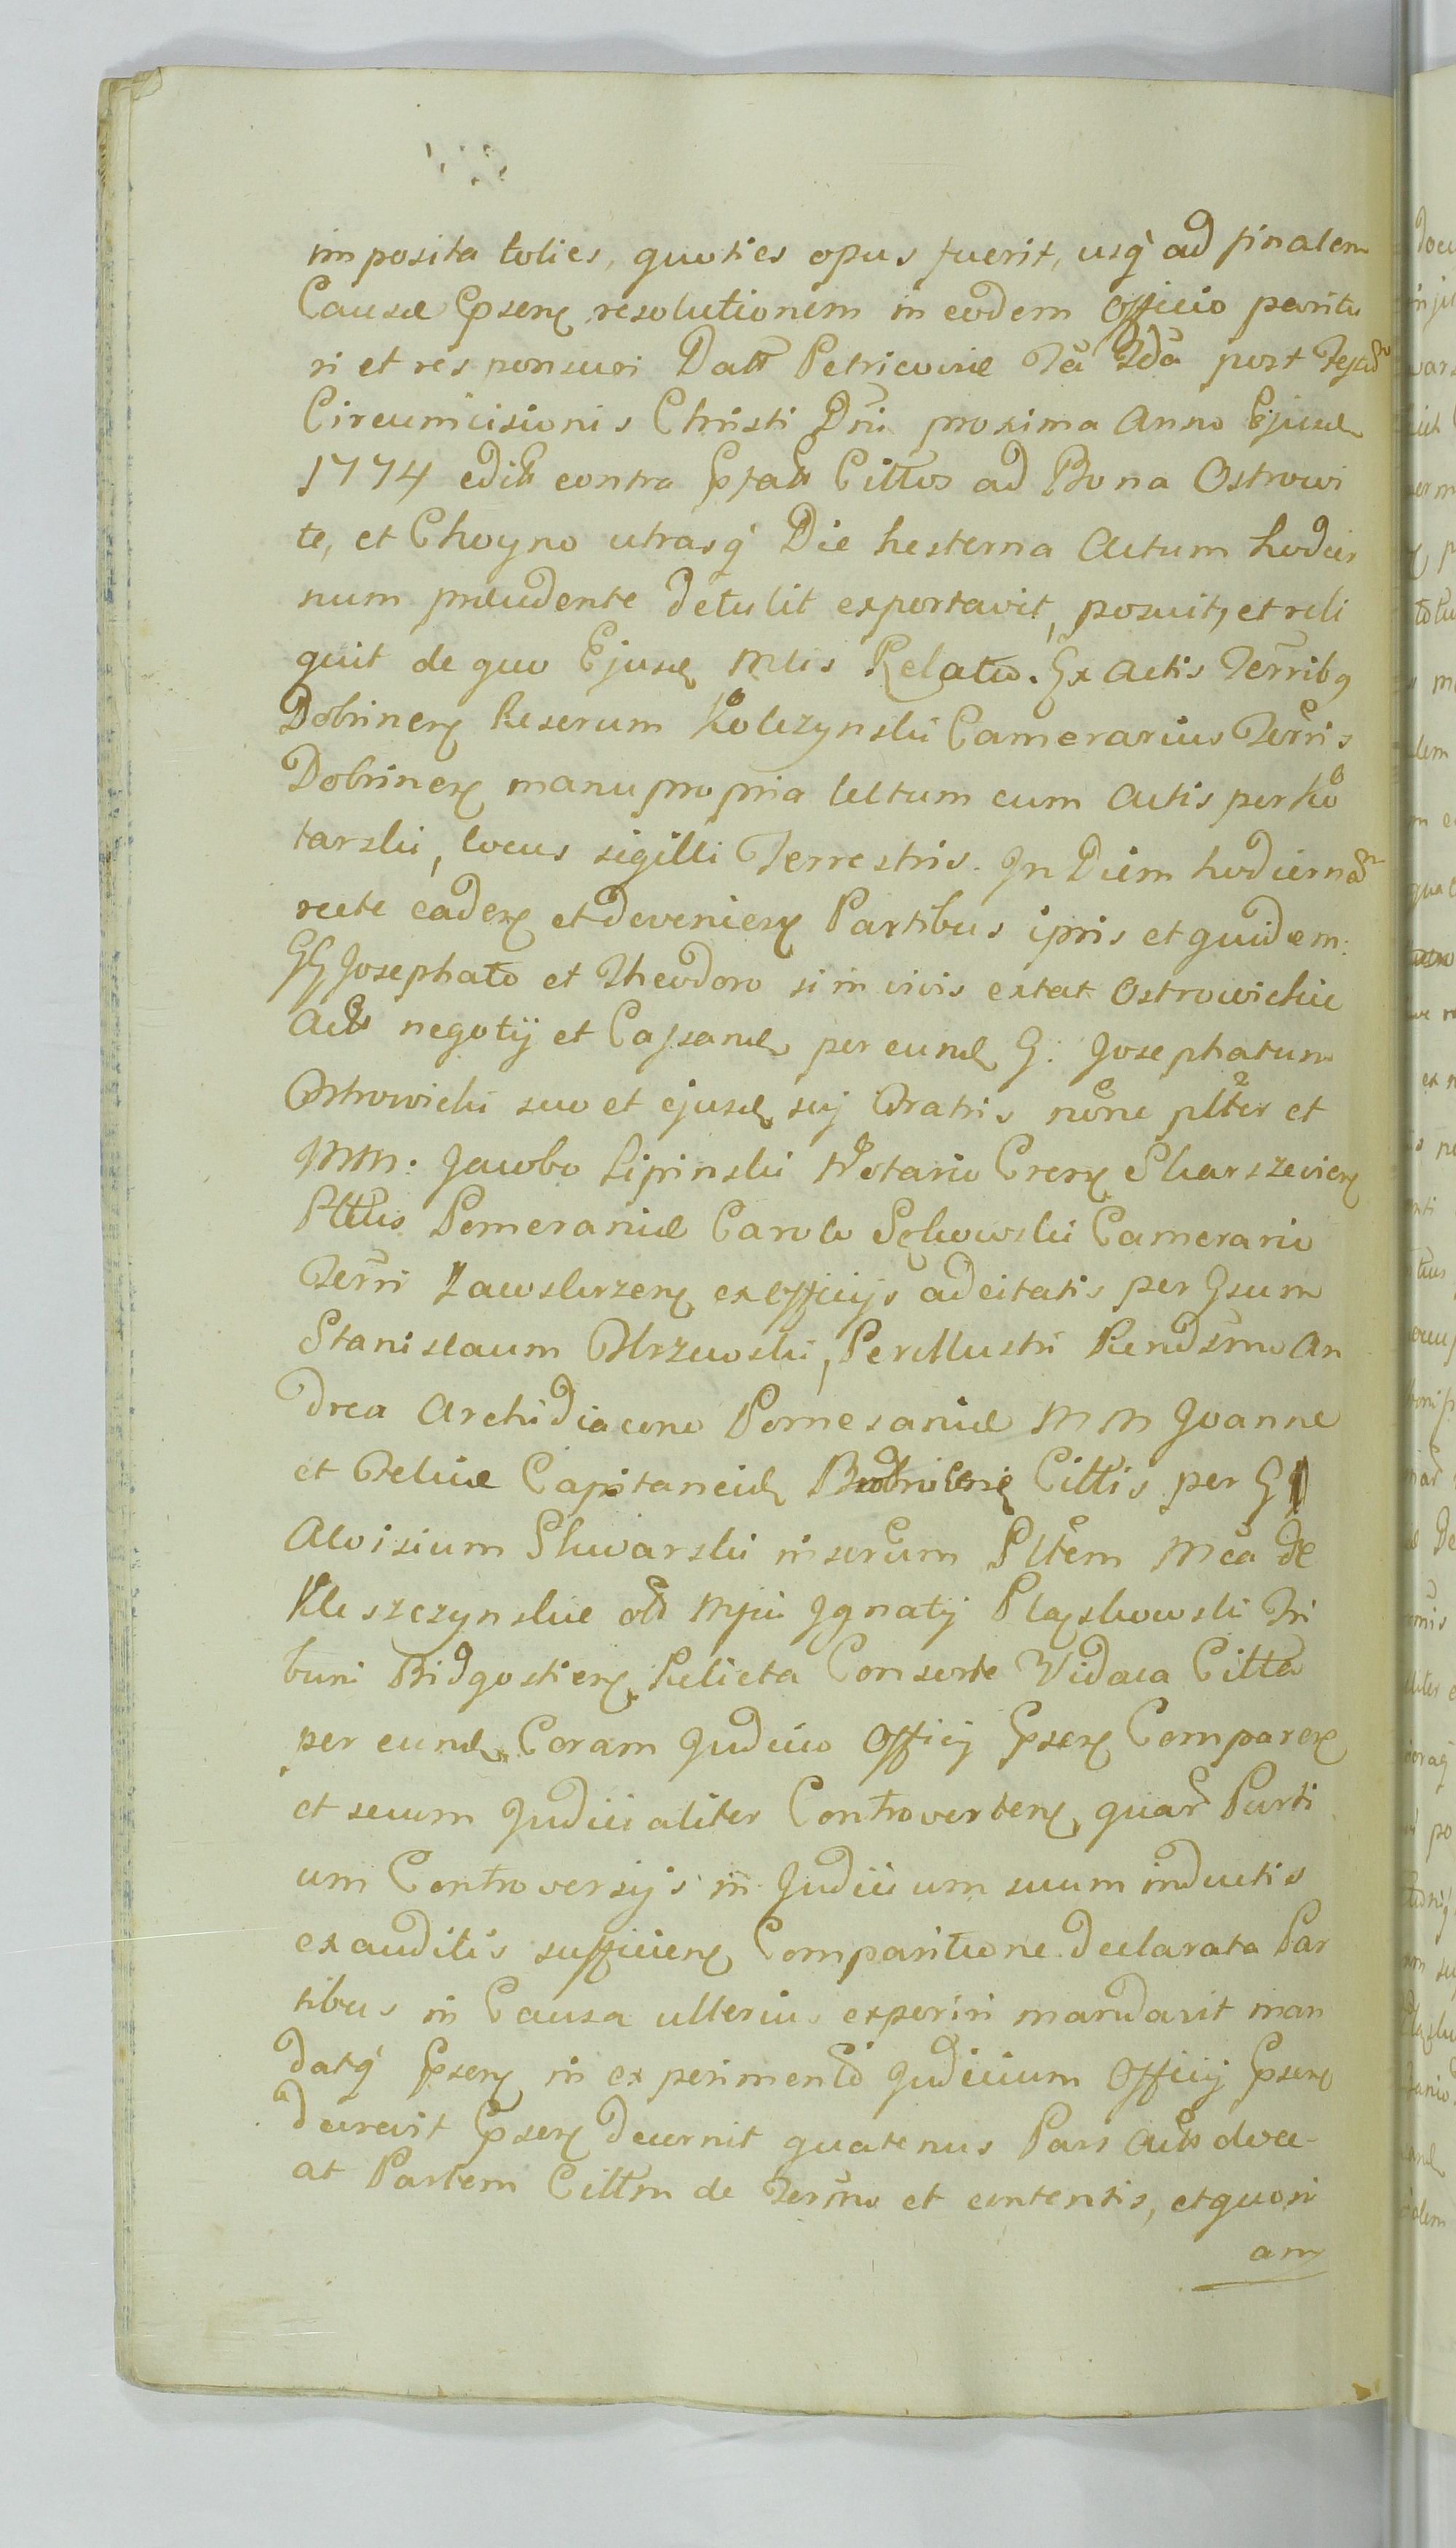 imposita toties, quoties opus fuerit, usq̀ ad finalem
Causæ Pnsen resolutionem in eodem Officio paritu
ri et responsuri Datt Petricoviæ Fa 2da post Festu
Circumcisionis Christi Dni proxima Anno Ejusd
1774 edit contra Pfatt Cittos ad Bona Ostrowi
te, et Choyno utrasq̀ Die hesterna Actum hodier
num præcedente detulit exportavit, posuit, et reli
quit de quo Ejusd Mlis Relatio. Ex Actis Terribg
Dobrinen Reserum Kolczynski Camerarius Terris
Dobrinen manu propria lectum cum Actis per Ko
tarski, locus sigilli Terrestris. In Diem hodierna
recte caden et devenien Partibus ipsis et quidem:
GG Josephato et Theodoro si in vivis extat Ostrowickie
Actts negotij et Cassand per eund G: Josephatum
Ostrowicki suo et ejusd sui Fratris noñe plter et
MM. Jacobo Lipinski Notario Cren Skarszevien
Pttus Pomeraniæ Carolo Sękowski Camerario
Terri Zawskrzen ex Officijs adcitatis per Gsum
Stanislaum Okrzewski, Perillustri Rendsmo An
drea Archidiacono Pomesaniæ MM Joanne
et Felice Capitaneid Cittis per G
Aloisium Skwarski inserum Pltem Mca de
Kleszczynskie old Mfii Ignatij Pląskowski Tri
buni Bidgostien Relicta Consorte Vidua Citta
per eund Coram Judicio Officij Pnsen Comparen
et secum Judicialiter Controverten, quar Parti
um Controversijs in Judicium suum inductis
exauditis sufficien Comparitione declarata Par
tibus in Causa ulterius experiri mandavit man
datq̀ Pnsen in experimento Judicium Officij Pnsen
decrevit Pnsen decernit quatenus Pars Actts doce
at Partem Cittm de Termno et contentis, et quoni
am